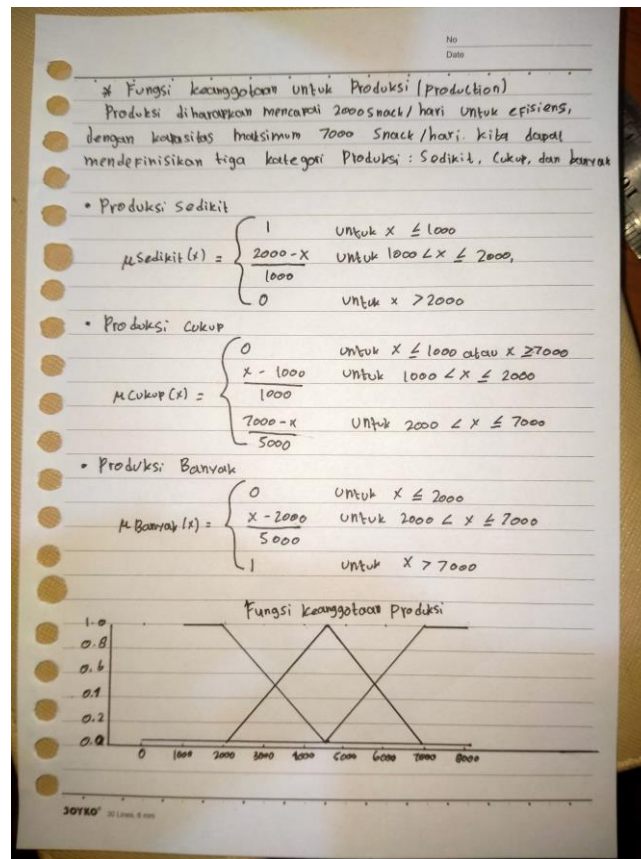 No
Date
* Fungsi keanggotaan untuk Produksi (production)
Produksi diharapkan mencapai 2000 snack / hari untuk efisiens,
dengan kapasitas maksimum 7000 snack / hari. kita dapat
mendefinisikan tiga kategori Produksi : Sedikit, Cukup, dan banyak
• Produksi Sedikit
1 untuk x ≤ 1000
μ Sedikit (x) = { (2000 - x) / 1000 untuk 1000 < x ≤ 2000,
0 untuk x > 2000
• Produksi Cukup
0 untuk x ≤ 1000 atau x ≥ 7000
(x - 1000) / 1000 untuk 1000 < x ≤ 2000
μ Cukup (x) = {
(7000 - x) / 5000 untuk 2000 < x ≤ 7000
• Produksi Banyak
0 untuk x ≤ 2000
μ Banyak (x) = { (x - 2000) / 5000 untuk 2000 < x ≤ 7000
1 untuk x > 7000
Fungsi keanggotaan produksi
1.0
0.8
0.6
0.4
0.2
0.0
0 1000 2000 3000 4000 5000 6000 7000 8000
JOYKO 30 Lines, 8 mm